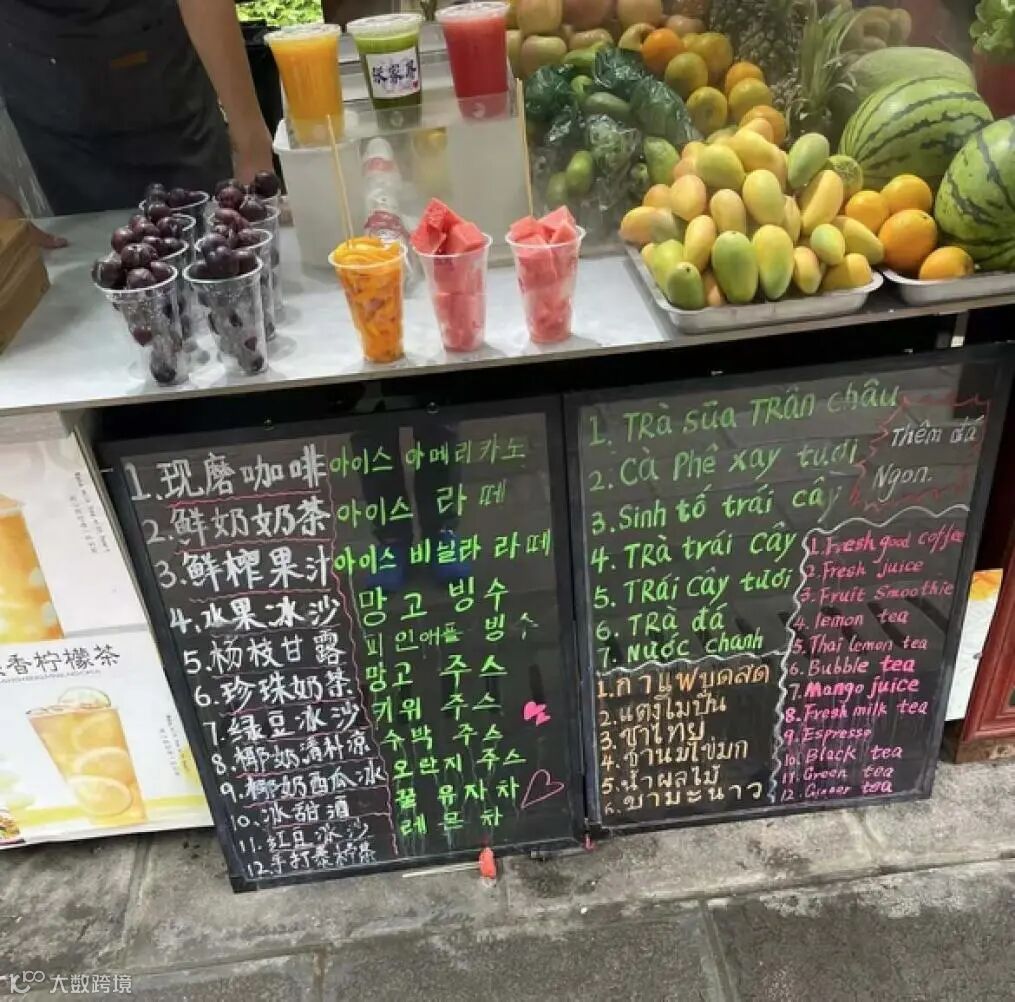 1.现磨咖啡
2.鲜奶奶茶
3.鲜榨果汁
4.水果冰沙
5.杨枝甘露
6.珍珠奶茶
7.绿豆冰沙
8.椰奶清补凉
9.椰奶西瓜冰
10.冰甜酒
11.红豆冰沙
12.手打柠檬茶
아이스 아메리카노
아이스 라떼
아이스 비닐라 라떼
망고 빙수
피인애플 빙수
망고 주스
키위 주스
수박 주스
오란지 주스
꿀 유자차
레몬차
1. TRà sữa TRân châu
2. Cà Phê xay tươi
3. Sinh tố trái cây
4. TRà trái cây
5. TRái cây tươi
6. TRà đá
7. Nước chanh
Thêm đá
Ngon.
1. กาแฟบูดสด
2. แตงโมปั่น
3. ชาไทย
4. ชานมไข่มุก
5. น้ำผลไม้
6. ชามะนาว
1. Fresh good coffee
2. Fresh juice
3. Fruit Smoothie
4. lemon tea
5. Thai lemon tea
6. Bubble tea
7. Mango juice
8. Fresh milk tea
9. Espresso
10. Black tea
11. Green tea
12. Ginger tea
香柠檬茶
大数跨境